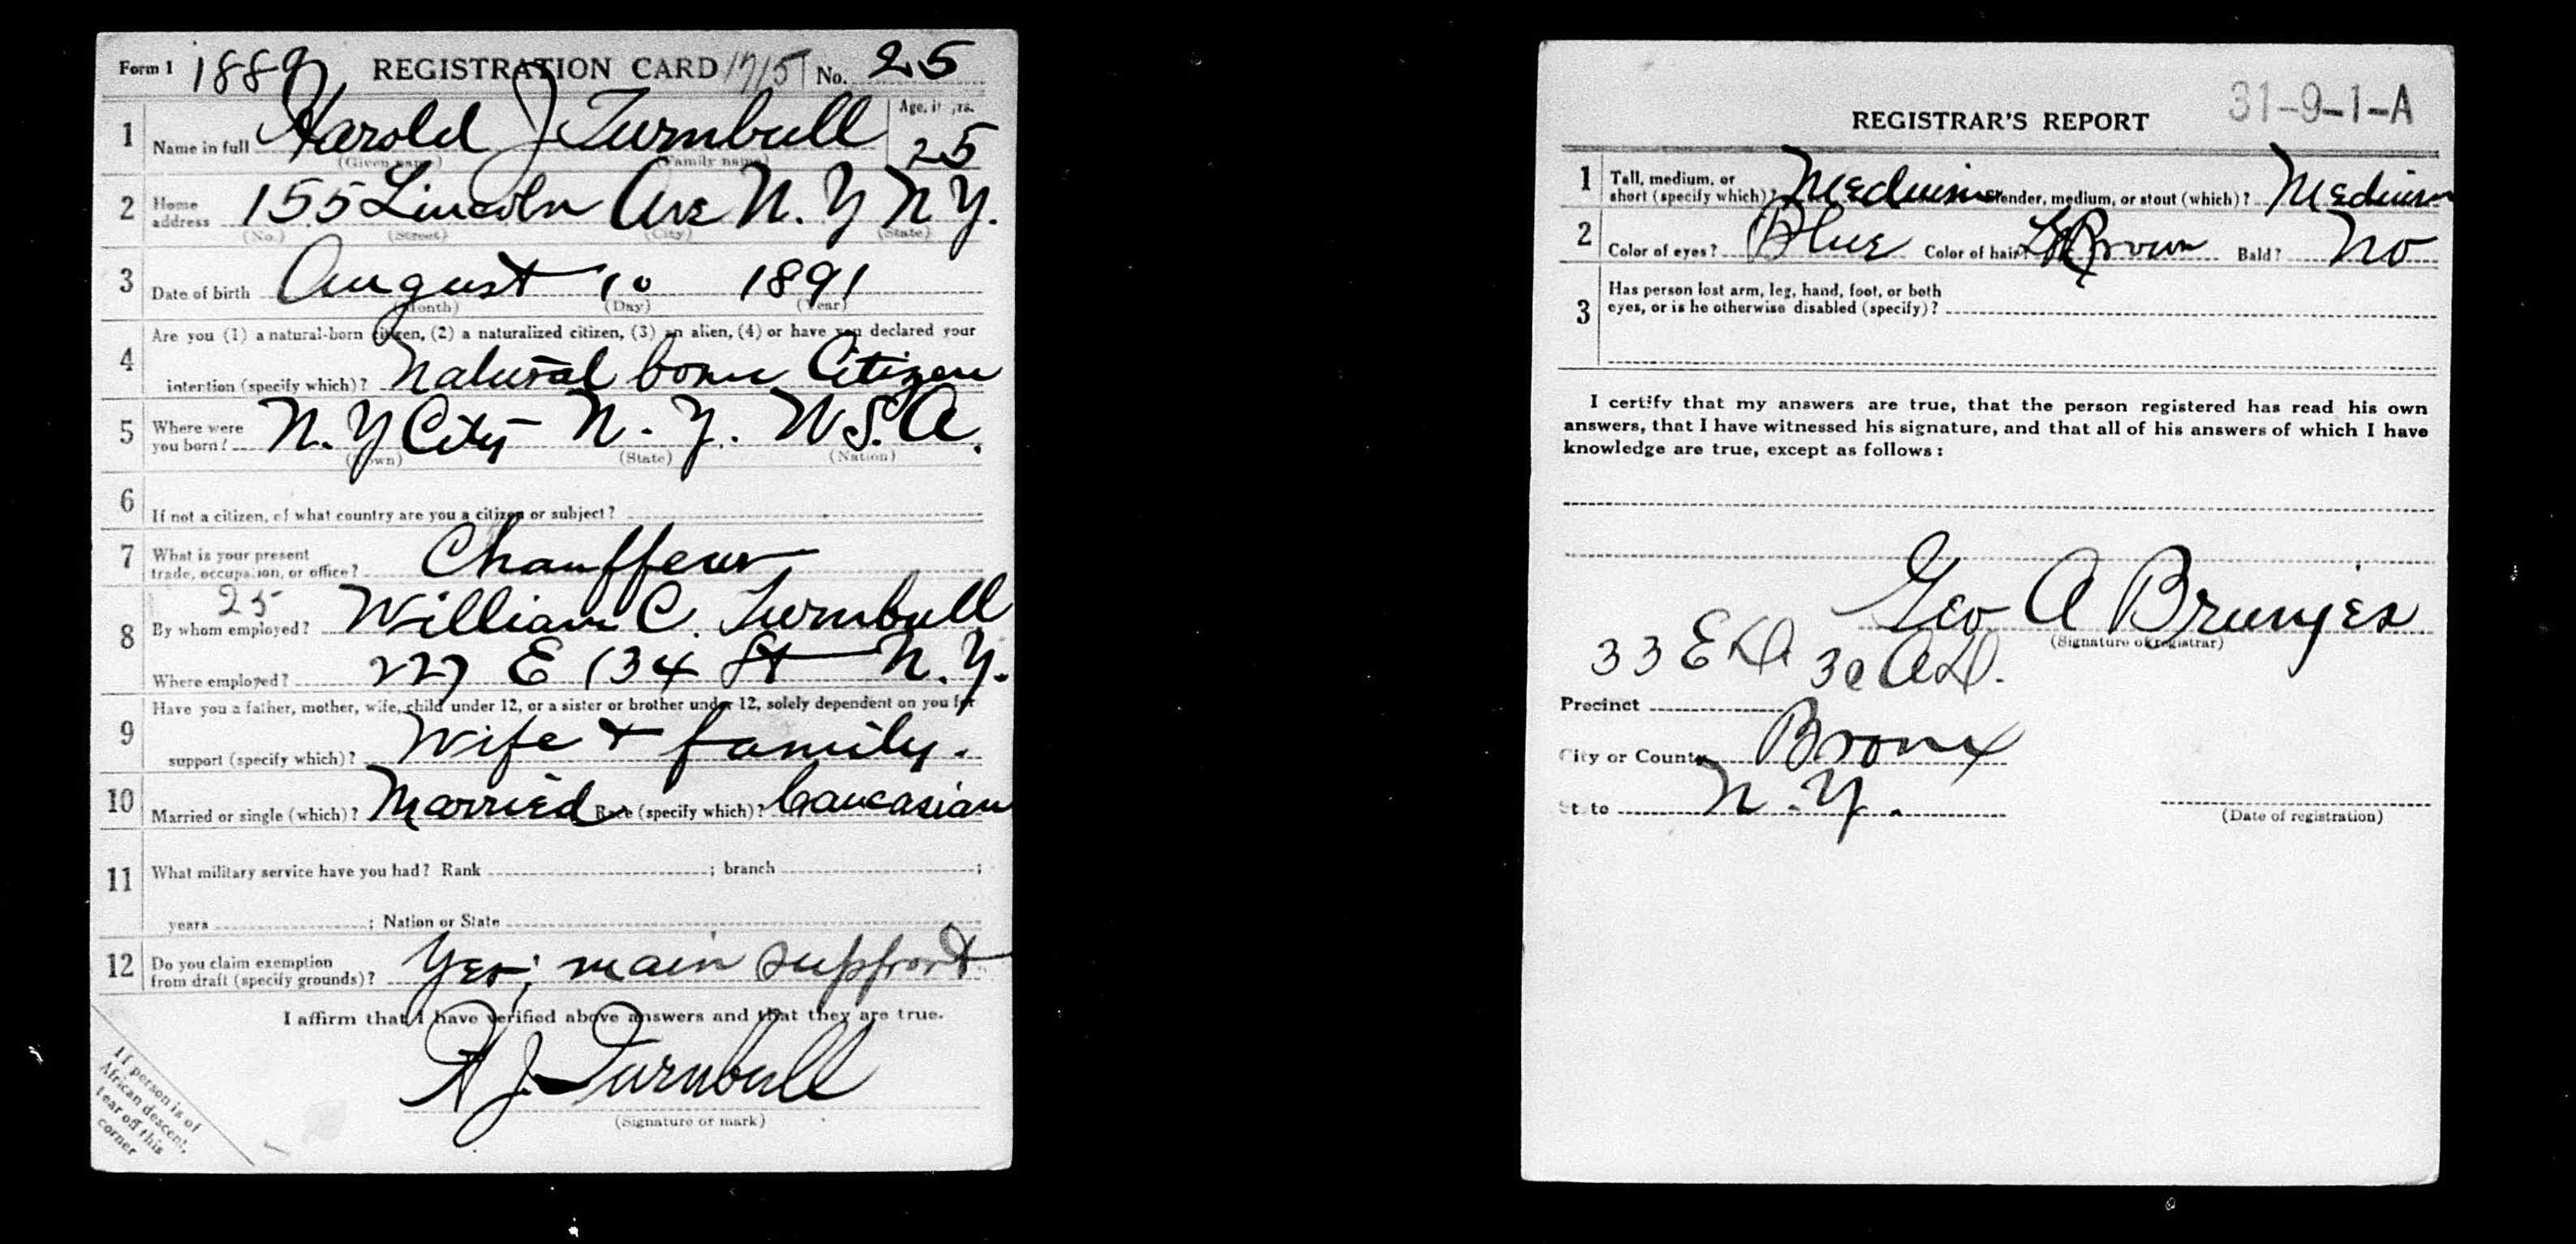 Form 1 1889 REGISTRATION CARD 1715 No. 25
1 Name in full Harold J Turnbull Age, in yrs. 25
(Given name) (Family name)
2 Home address 155 Lincoln Ave N.Y N.Y.
(No.) (Street) (City) (State)
3 Date of birth August 10 1891
(Month) (Day) (Year)
Are you (1) a natural-born citizen, (2) a naturalized citizen, (3) an alien, (4) or have you declared your
4 intention (specify which)? Natural born Citizen
5 Where were you born? N.Y City N.Y. U.S.A.
(Town) (State) (Nation)
6 If not a citizen, of what country are you a citizen or subject?
7 What is your present trade, occupation, or office? Chauffeur
25
8 By whom employed? William C. Turnbull
Where employed? 227 E 134 St N.Y.
Have you a father, mother, wife, child under 12, or a sister or brother under 12, solely dependent on you for
9 support (specify which)? Wife + family.
10 Married or single (which)? Married Race (specify which)? Caucasian
11 What military service have you had? Rank ; branch ;
years ; Nation or State
12 Do you claim exemption from draft (specify grounds)? Yes; main support
I affirm that I have verified above answers and that they are true.
H J. Turnbull
(Signature or mark)
If person is of
African descent,
tear off this
corner
31-9-1-A
REGISTRAR'S REPORT
1 Tall, medium, or short (specify which)? Medium Slender, medium, or stout (which)? Medium
2 Color of eyes? Blue Color of hair? Lt Brown Bald? No
3 Has person lost arm, leg, hand, foot, or both
eyes, or is he otherwise disabled (specify)?
I certify that my answers are true, that the person registered has read his own
answers, that I have witnessed his signature, and that all of his answers of which I have
knowledge are true, except as follows:
Geo A Brunjes
(Signature of registrar)
33 E.D. 30 A.D.
Precinct
City or County Bronx
State N.Y.
(Date of registration)